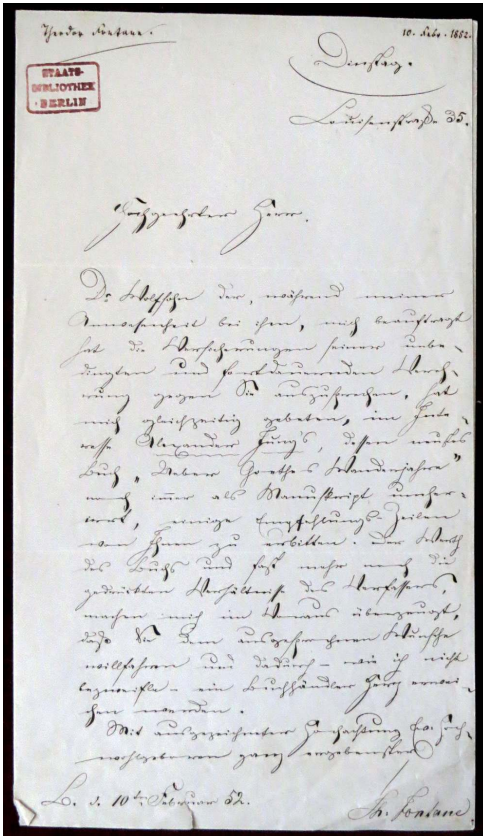 Theodor Fontane.
10. Febr. 1852.
STAATS-
BIBLIOTHEK
BERLIN
Dienstag.
Louisenstraße 35.
Hochgeehrter Herr.
Dr Wolfsohn der, während meiner
Anwesenheit bei ihm, mich beauftragt
hat die Versicherungen seiner unbe-
dingten und fortdauernden Vereh-
rung gegen Sie auszusprechen, hat
mich gleichzeitig gebeten, im Inte-
resse Alexander Jung's, dessen neustes
Buch „Ueber Goethes Wanderjahre"
noch immer als Manuskript umher-
irrt, einige Empfehlungs-Zeilen
von Ihnen zu erbitten. Der Werth
des Buchs und fast mehr noch die
gedrückten Verhältnisse des Verfassers,
machen mich im Voraus überzeugt,
daß Sie dem ausgesprochenen Wunsche
willfahren und dadurch – wie ich nicht
bezweifle – ein Buchhändler Herz erwei-
chen werden.
Mit ausgezeichneter Hochachtung Ew. Hoch-
wohlgeboren ganz ergebenster
B. d. 10ten Februar 52.
Th. Fontane